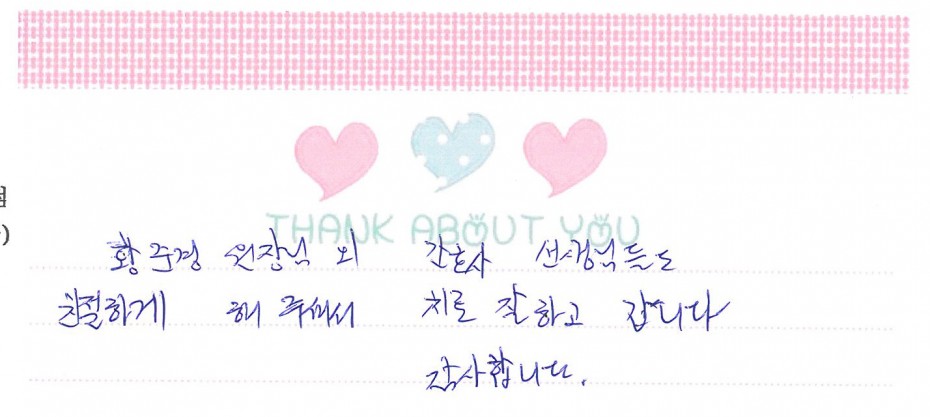 THANK ABOUT YOU
황주경 원장님 외 간호사 선생님들도
친절하게 해 주셔서 치료 잘하고 갑니다
감사합니다.